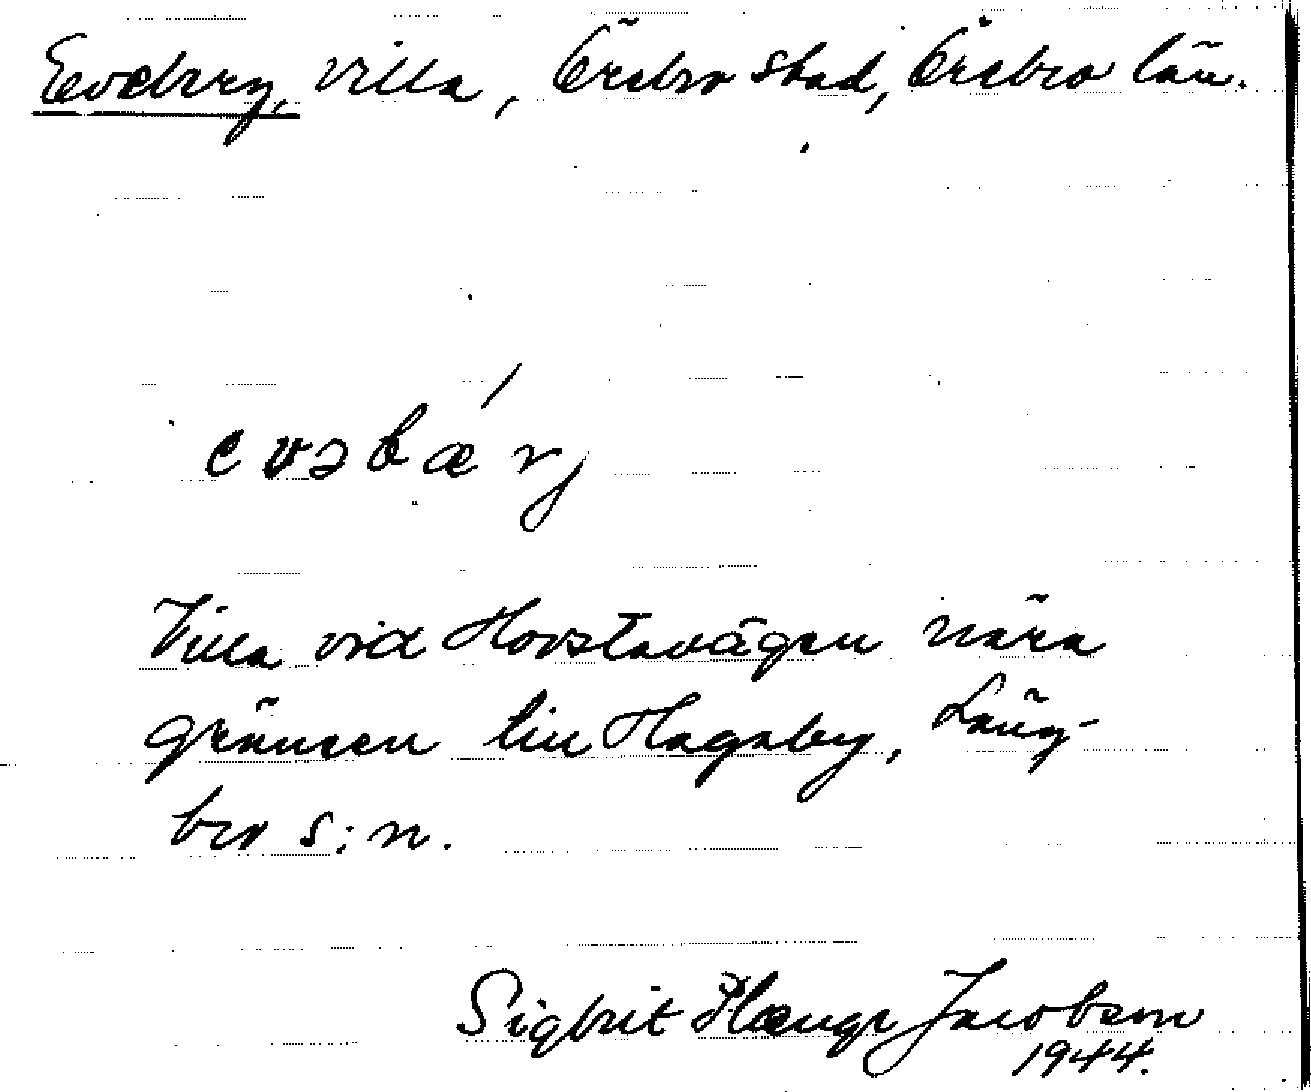 Eveberg, villa, Örebro stad, Örebro län.
evəbæ´rj
Villa vid Hovstavägen nära
gränsen till Hagaby, Läng-
bro s:n.
Sigbrit Plænge Jacobson
1944.